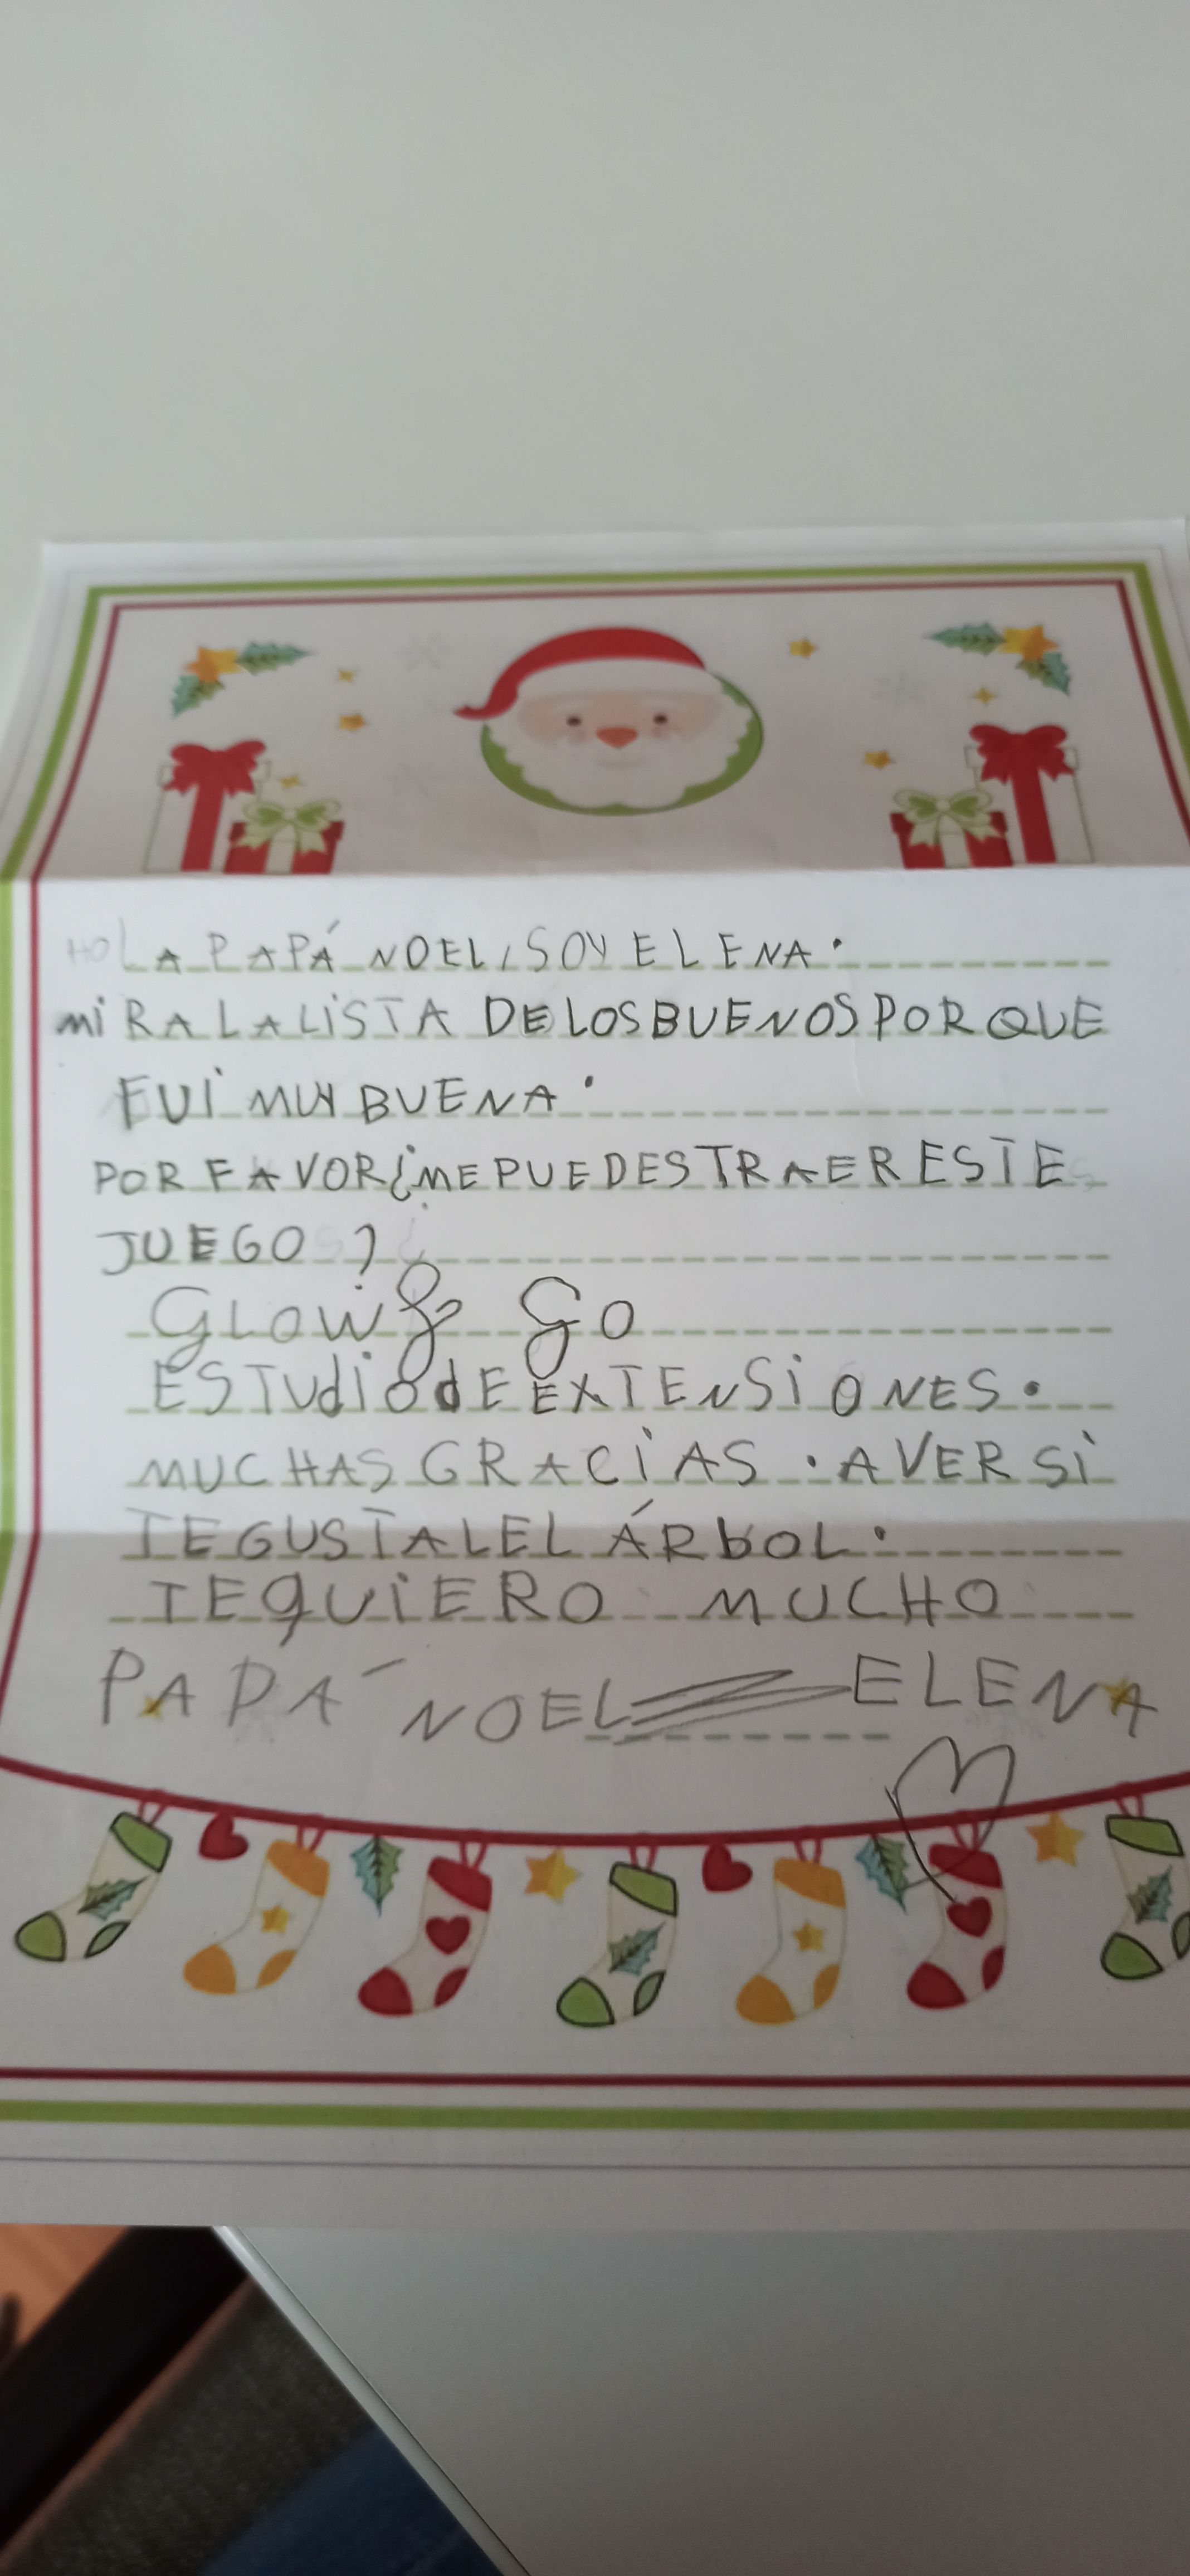 HOLA PAPÁ NOEL, SOY ELENA.
MIRA LA LISTA DE LOS BUENOS PORQUE
FUI MUY BUENA.
POR FAVOR ¿ME PUEDES TRAER ESTE
JUEGO?
GLOW & GO
ESTUdiO dE EXTENSIONES.
MUCHAS GRACIAS. A VER SI
TE GUSTA LEL ÁRbOL.
TE qUIERO MUCHO
PAPÁ NOEL ELENA